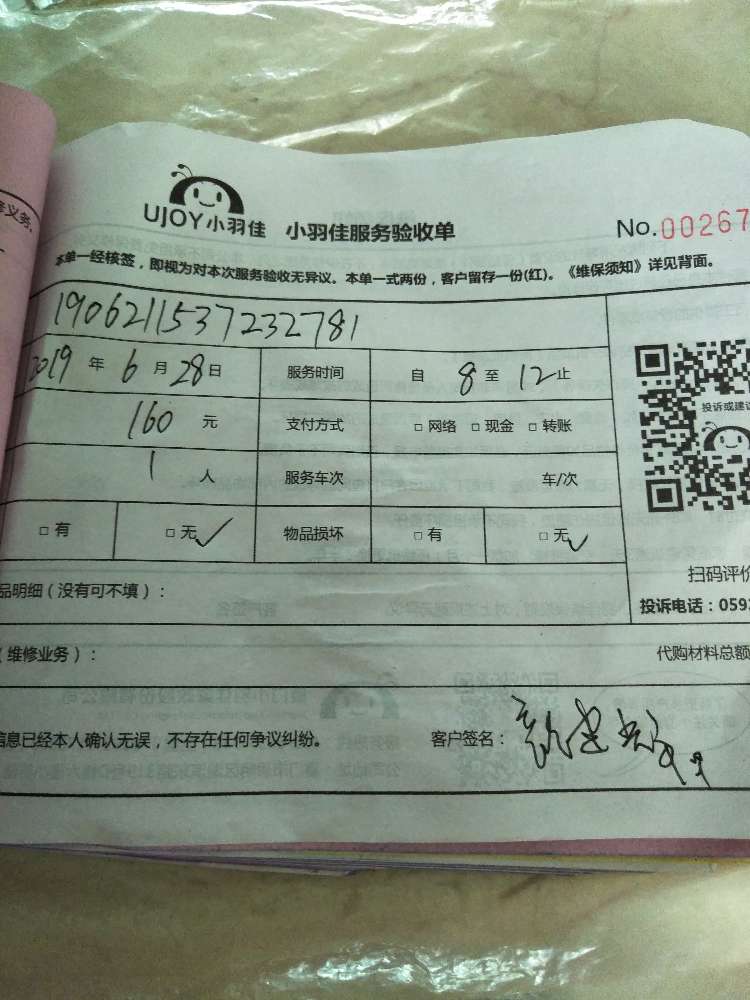 UJOY小羽佳 小羽佳服务验收单 No.00267
本单一经核签，即视为对本次服务验收无异议。本单一式两份，客户留存一份(红)。《维保须知》详见背面。
19062115372327 81
2019 年 6 月 28 日 服务时间 自 8 至 12 止
160 元 支付方式 □ 网络 □ 现金 □ 转账
投诉或建议
1 人 服务车次 车/次
□ 有 □ 无✓ 物品损坏 □ 有 □ 无✓
扫码评价
品明细（没有可不填）： 投诉电话：0592
（维修业务）： 代购材料总额
信息已经本人确认无误，不存在任何争议纠纷。 客户签名：